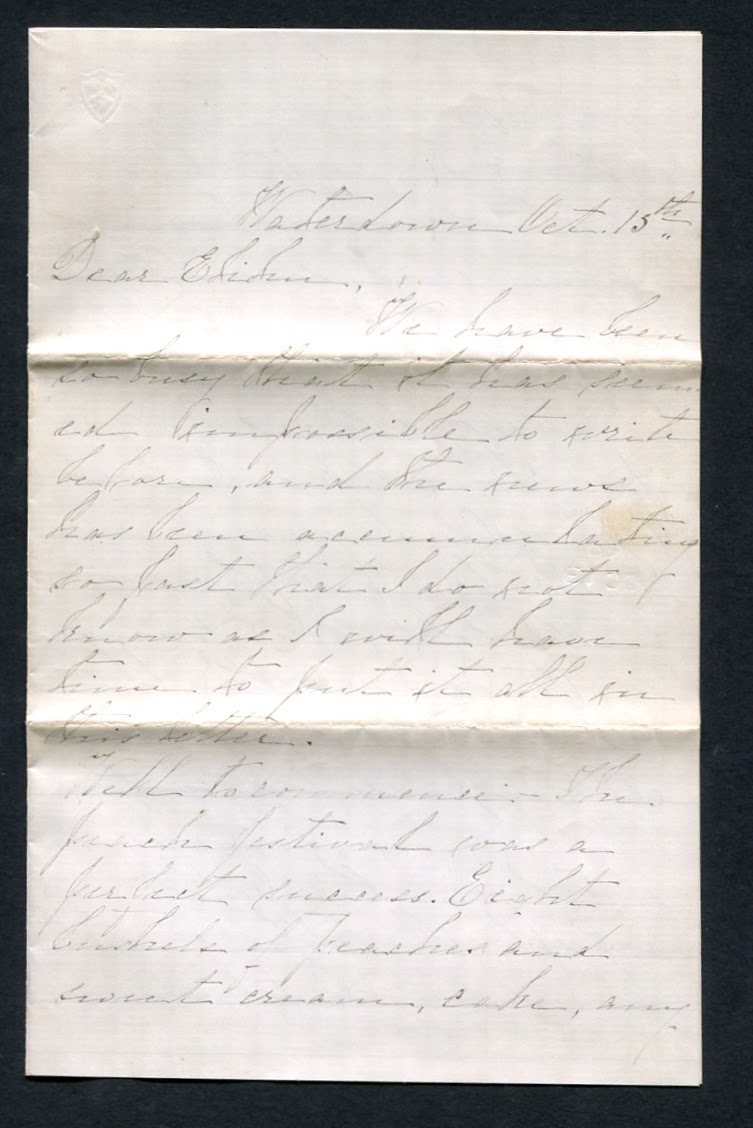 Waterdown Oct. 15th
Dear Elihu,
We have been
so busy that it has seem
ed impossible to write
before, and the news
has been accumulating
so fast that I do not
know as I will have
time to put it all in
this letter.
Well to commence - The
peach festival was a
perfect success. Eight
bushels of peaches and
sweet cream, cake, any